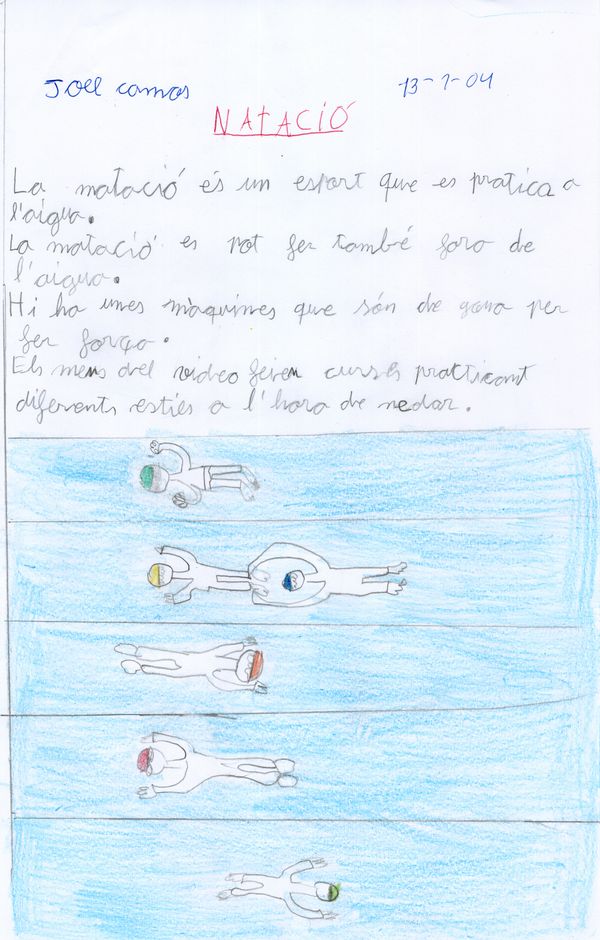 Joel camos 13-1-04
NATACIÓ
La natació és un esport que es pratica a
l'aigua.
La natació es pot fer també fora de
l'aigua.
Hi ha unes màquines que són de goma per
fer força.
Els nens del video feien curses practicant
diferents estils a l'hora de nedar.